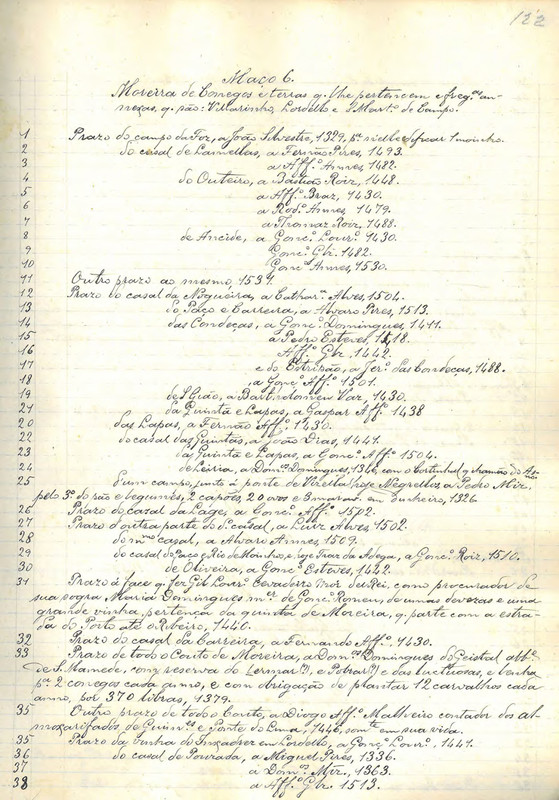 122
Maço 6.
Moreira de Conegos e terras q. lhe pertencem e freg.as an-
nexas, q. são: Villarinho, Lordello e S. Mart.º de Campo.
1 Prazo do campo da Foz, a João Silvestre, 1329, p.ª n'elle fazer 1 moinho.
2 do casal de Lamellas, a Fernão Pires, 1493.
3 a Aff.º Annes, 1482.
4 do Outeiro, a Bastião Roiz, 1448.
5 a Aff.º Braz, 1430.
6 a Rod.º Annes, 1479.
7 a Thomaz Roiz, 1488.
8 de Ancide, a Gonc.º Lour.º 1430.
9 Gonc.º Glz. 1482.
10 Gonc.º Annes, 1530.
11 Outro prazo ao mesmo, 1534.
12 Prazo do casal da Nogueira, a Cathar.ª Alves, 1504.
13 do Paço e Carreira, a Alvaro Pires, 1513.
14 das Condeças, a Gonc.º Domingues, 1411.
15 a Pedro Esteves, 1518.
16 Aff.º Glz. 1442.
17 e do Estrizão, a Jer.º das Condeças, 1488.
18 a Gonc.º Aff.º 1501.
19 de S. Gião, a Bartholomeu Vaz, 1430.
21 da Quintã e Lapas, a Gaspar Aff.º 1438
20 das Lapas, a Fernão Aff.º 1430.
22 do casal das Quintãs, a João Dias, 1441.
23 da Quintã e Lapas, a Gonc.º Aff.º 1504.
24 de Leiria, a Dom.os Domingues, 1346, com o Cortinhal q. chamão do
25 d'um campo, junto á ponte de Vizella, hoje Negrellos, a Pedro Miz.
pelo 3.º do pão e legumes, 2 capões, 20 ovos e 3 marav. em dinheiro, 1326
26 Prazo do cazal da Lage, a Gonc.º Aff.º 1502.
27 Prazo d'outra parte do d.º casal, a Luiz Alves, 1502.
28 do m.mo casal, a Alvaro Annes, 1509.
29 do casal do Paço, e Rio de Moinho, e hoje Traz da Adega, a Gonc.º Roiz, 1510.
30 de Oliveira, a Gonc.º Esteves, 1442.
31 Prazo á face q. fez Gil Lour.º Cevadeiro Mor del Rei, como procurador de
sua sogra Maria Domingues m.er de Gonc.º Romeu, de umas devezas e uma
grande vinha, pertença da quinta de Moreira, q. parte com a estra-
da do Porto até o Ribeiro, 1446.
32 Prazo do casal da Carreira, a Fernando Aff.º, 1430.
33 Prazo de todo o Couto de Moreira, a Dom.os Domingues do Geistal abb.e
de S. Mamede, com reserva do Lermar(?), e Potrar(?) e das luctuosas, e venha
p.ª 2 conegos cada anno, e com obrigação de plantar 12 carvalhos cada
anno, por 370 libras, 1379.
35 Outro prazo de todo o Couto, a Diogo Aff.º Malheiro contador dos al-
moxarifados, de Guim.es e Ponte do Lima, 1446, som.te em sua vida.
35 Prazo da Venha do Enxadrez em Lordello, a Gonç.º Lour.º, 1441.
36 do casal de Pousada, a Miguel Pires, 1336.
37 a Dom.os Miz., 1363.
38 a Aff.º Glz. 1513.